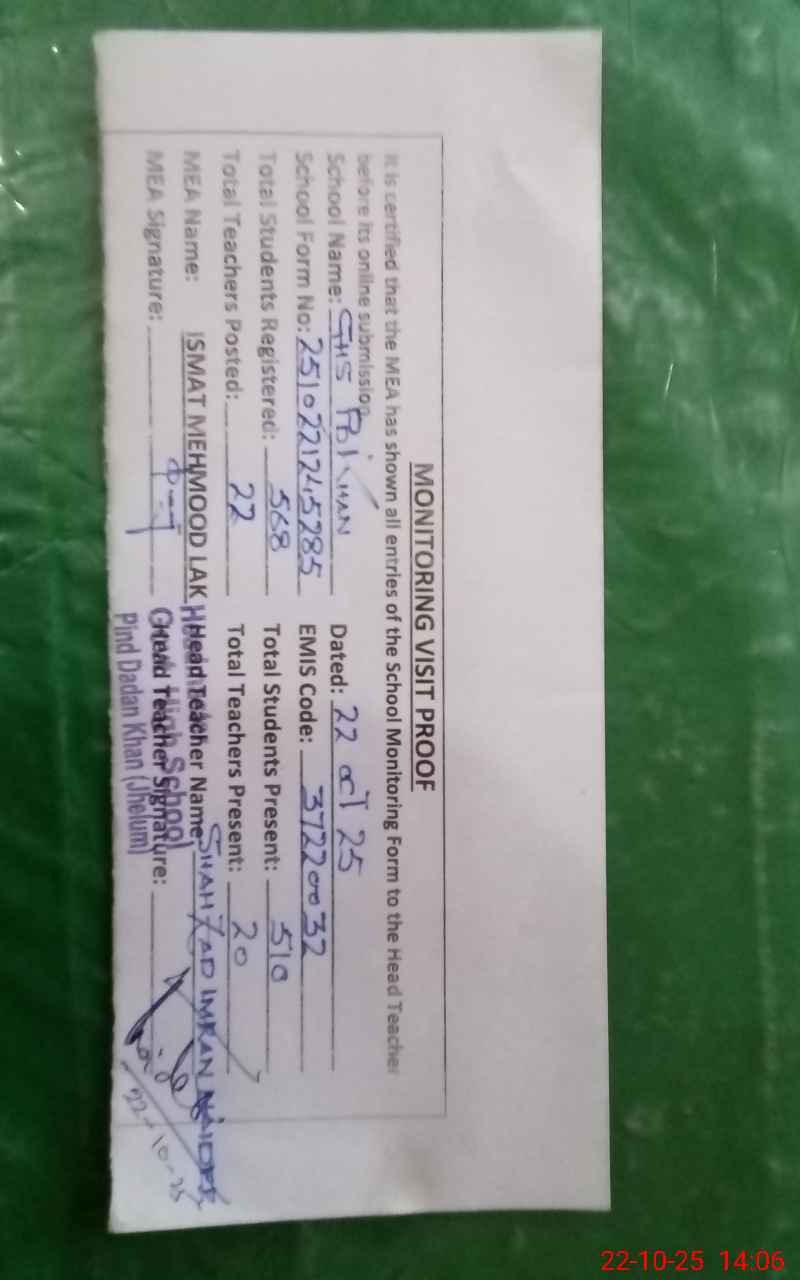 MONITORING VISIT PROOF
It is certified that the MEA has shown all entries of the School Monitoring Form to the Head Teacher
before its online submission.
School Name: GHS PD KHAN Dated: 22 OCT 25
School Form No: 251022124,5285 EMIS Code: 37220032
Total Students Registered: 568 Total Students Present: 510
Total Teachers Posted: 22 Total Teachers Present: 20
MEA Name: ISMAT MEHMOOD LAK Head Teacher Name: SHAHZAD IMRAN
MEA Signature: Head Teacher Signature:
High School
Pind Dadan Khan (Jhelum)
22-10-25
22-10-25 14:06